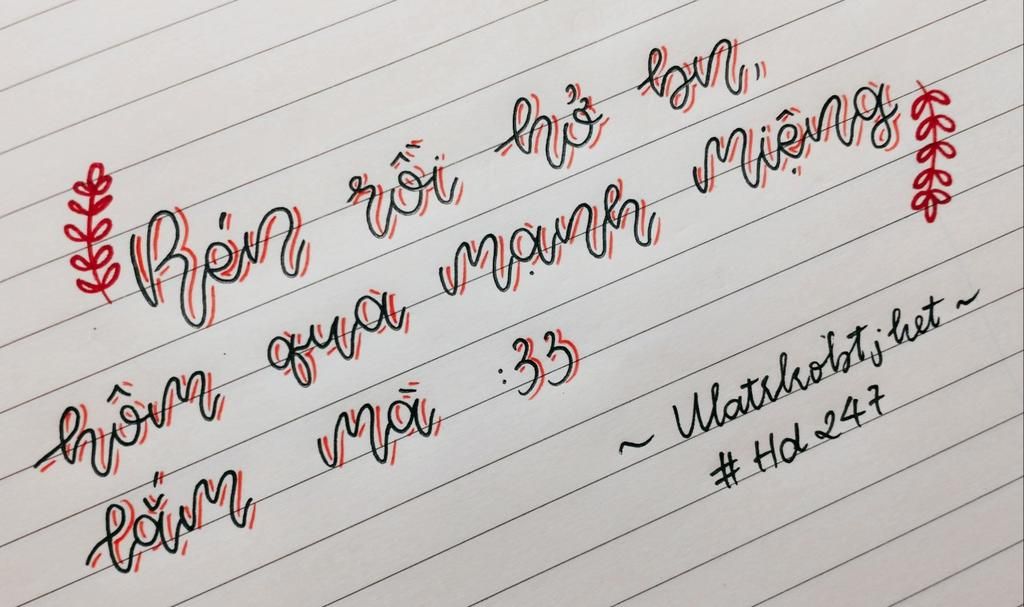 Rén rồi hở bn,,
hôm qua mạnh miệng
lắm mà :33
~ Ulatskobtjhet ~
# Hd 247